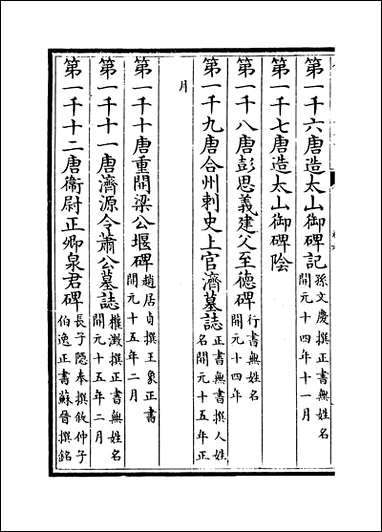 第一千六唐造太山御碑記 孫文慶撰正書無姓名開元十四年十一月
第一千七唐造太山御碑陰
第一千八唐彭思義建父至德碑 行書無姓名開元十四年
第一千九唐合州刺史上官濟墓誌 正書無書撰人姓名開元十五年正
月
第一千十唐重開梁公堰碑 趙居貞撰王象正書開元十五年二月
第一千十一唐濟源令蕭公墓誌 權澈撰正書無姓名開元十五年二月
第一千十二唐衞尉正卿泉君碑 長子隱奉撰敘仲子伯逸正書蘇晉撰銘